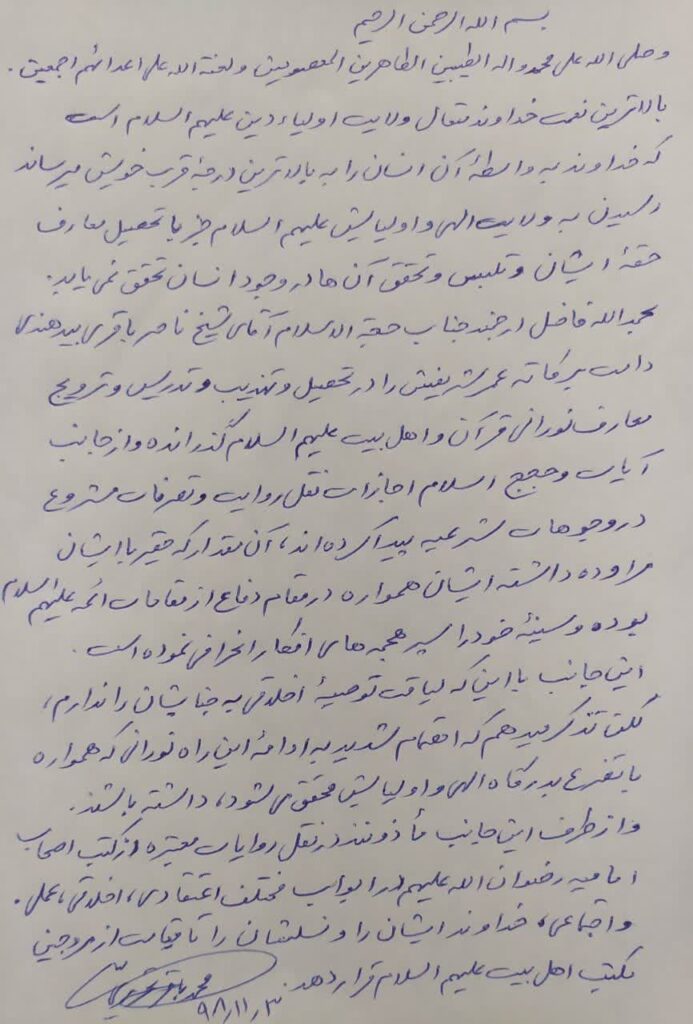 بسم الله الرحمن الرحیم
و صلی الله علی محمد و آله الطیبین الطاهرین المعصومین و لعنة الله علی اعدائهم اجمعین.
بالاترین نعمت خداوند متعال ولایت اولیاء دین علیهم السلام است
که خداوند به واسطهٔ آن انسان را به بالاترین درجهٔ قرب خویش میرساند
رسیدن به ولایت الهی و اولیایش علیهم السلام جز با تحصیل معارف
حقهٔ ایشان و تلبس و تحقق آن ها در وجود انسان تحقق نمی یابد.
بحمدالله فاضل ارجمند جناب حجة الاسلام آقای شیخ ناصر باقری بیدهندی
دامت برکاته عمر شریفش را در تحصیل و تهذیب و تدریس و ترویج
معارف نورانی قرآن و اهل بیت علیهم السلام گذرانده و از جانب
آیات و حجج اسلام اجازات نقل روایت و تصرفات مشروع
در وجوهات شرعیه پیدا کرده اند، آن مقدار که حقیر با ایشان
مراوده داشته ایشان همواره در مقام دفاع از مقامات ائمه علیهم السلام
بوده و سینهٔ خود را سپر هجمه های افکار انحرافی نموده است.
این جانب با این که لیاقت توصیهٔ اخلاقی به جنابشان را ندارم،
لکن تذکر میدهم که اهتمام شدید به ادامهٔ این راه نورانی که همواره
با تضرع بدرگاه الهی و اولیایش محقق می شود، داشته باشند.
و از طرف این جانب مأذونند در نقل روایات معتبره از کتب اصحاب
امامیه رضوان الله علیهم در ابواب مختلف اعتقادی، اخلاقی، عملی.
و اجتماعی، خداوند ایشان را و نسلشان را تا قیامت از مروجین
مکتب اهل بیت علیهم السلام قرار دهد.
محمد باقر
۹۸/۱۱/۳